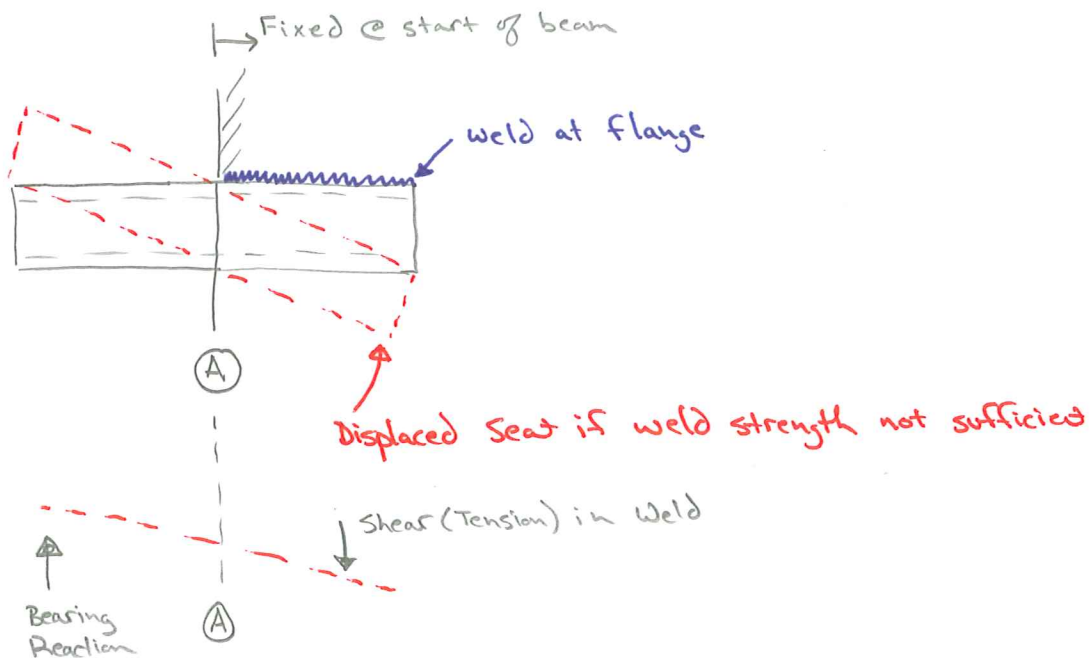 Fixed @ start of beam
weld at flange
A
Displaced Seat if weld strength not sufficient
Shear (Tension) in Weld
Bearing
Reaction
A